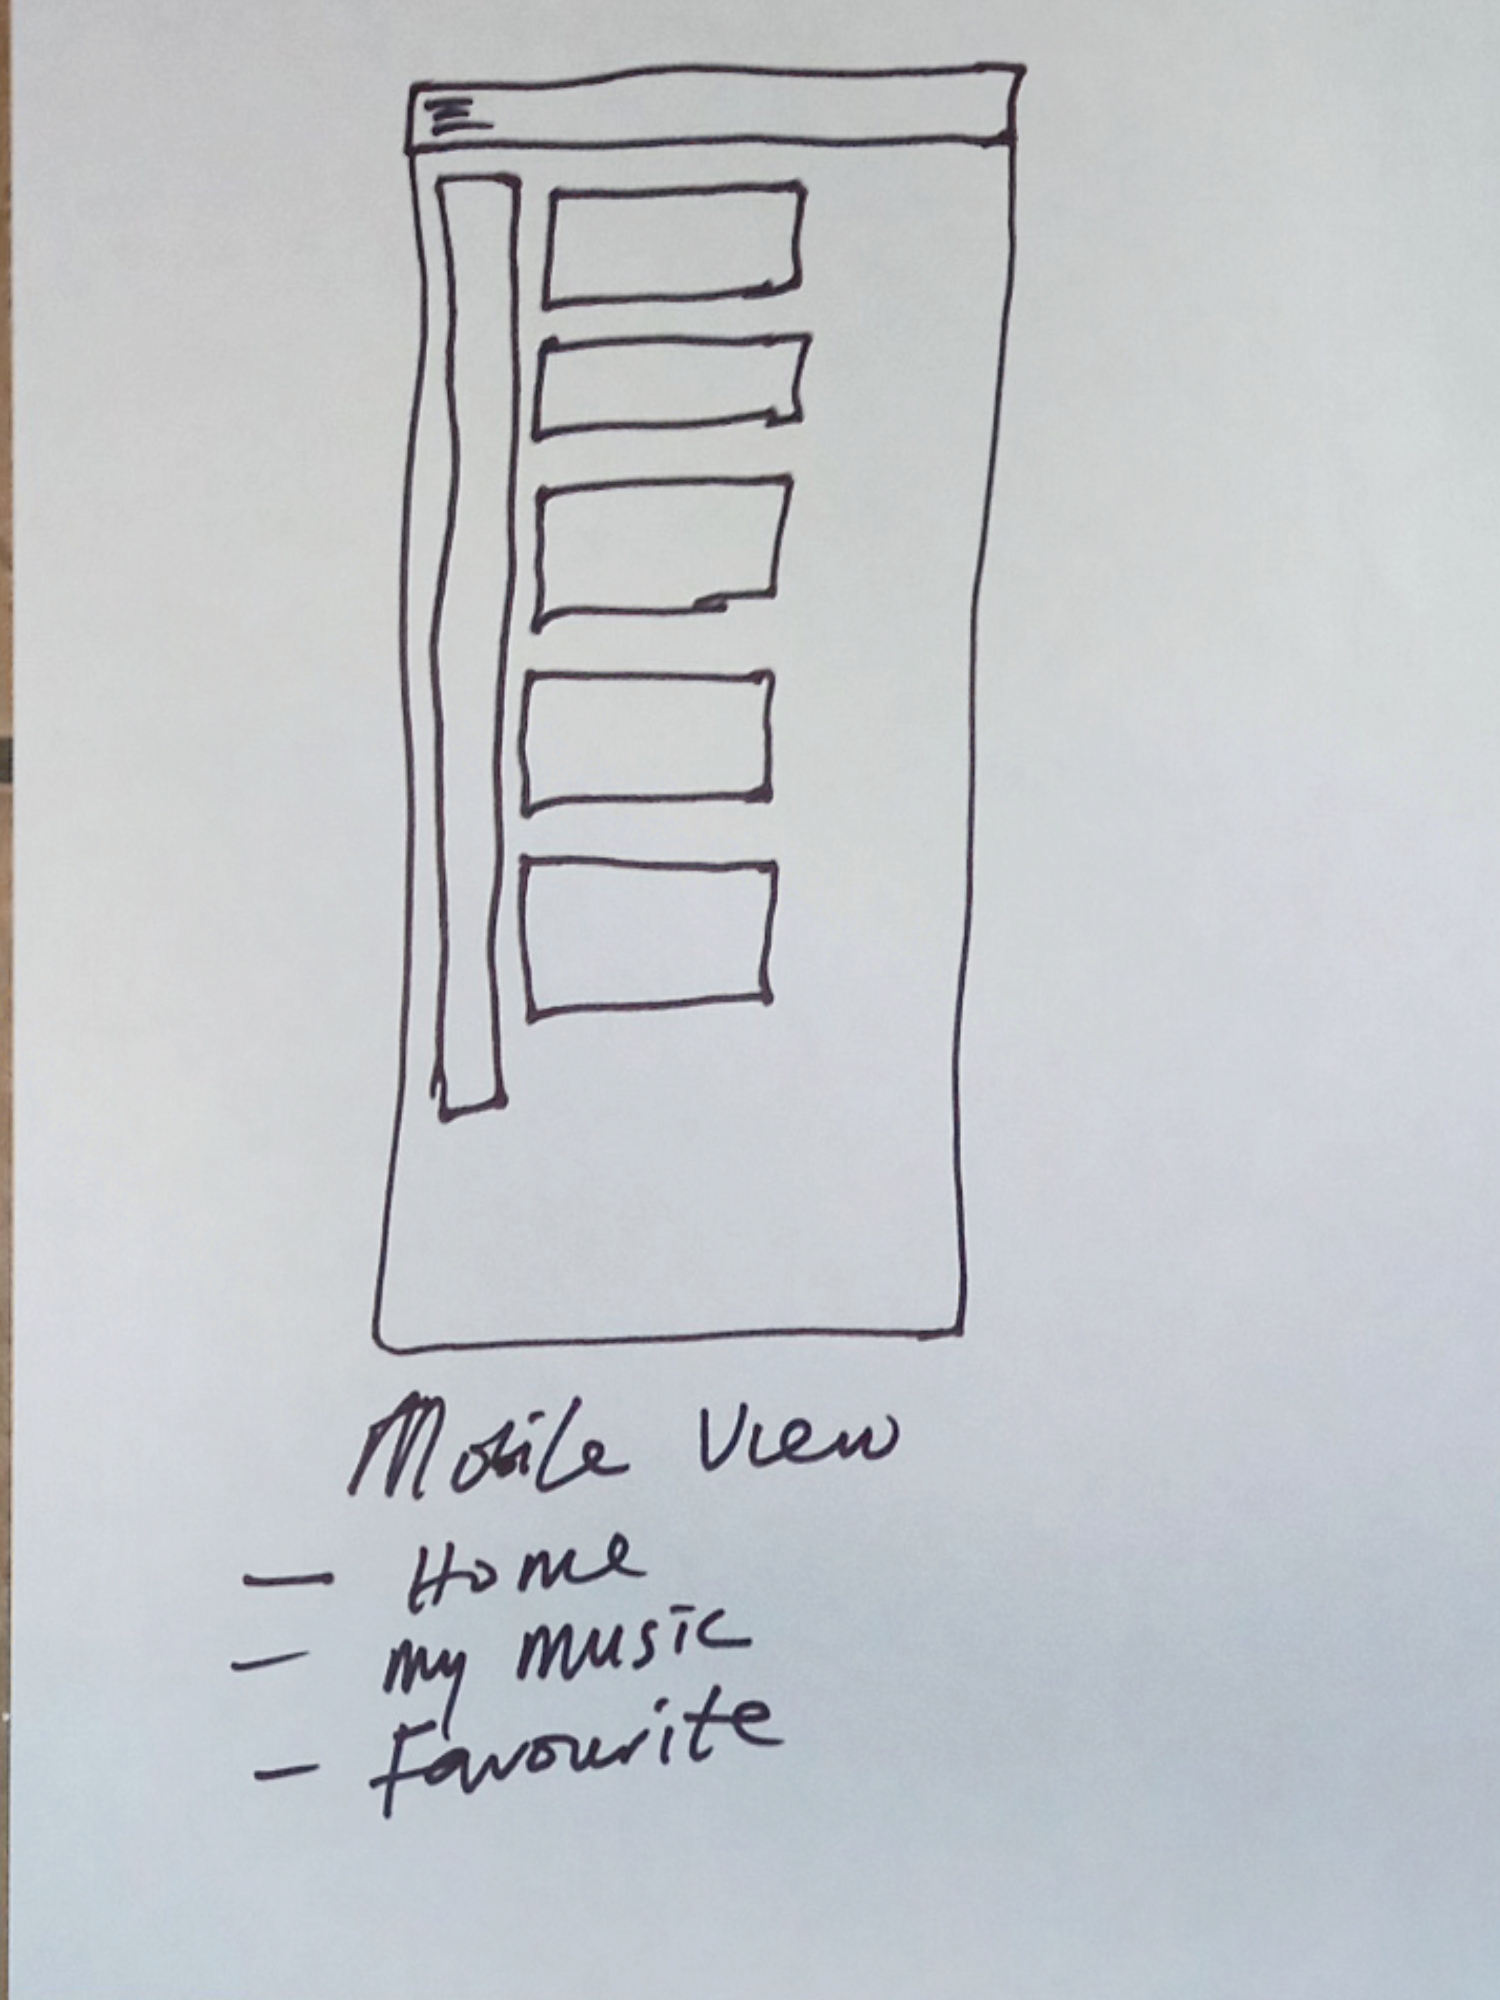 Mobile View
— Home
— my music
— Favourite